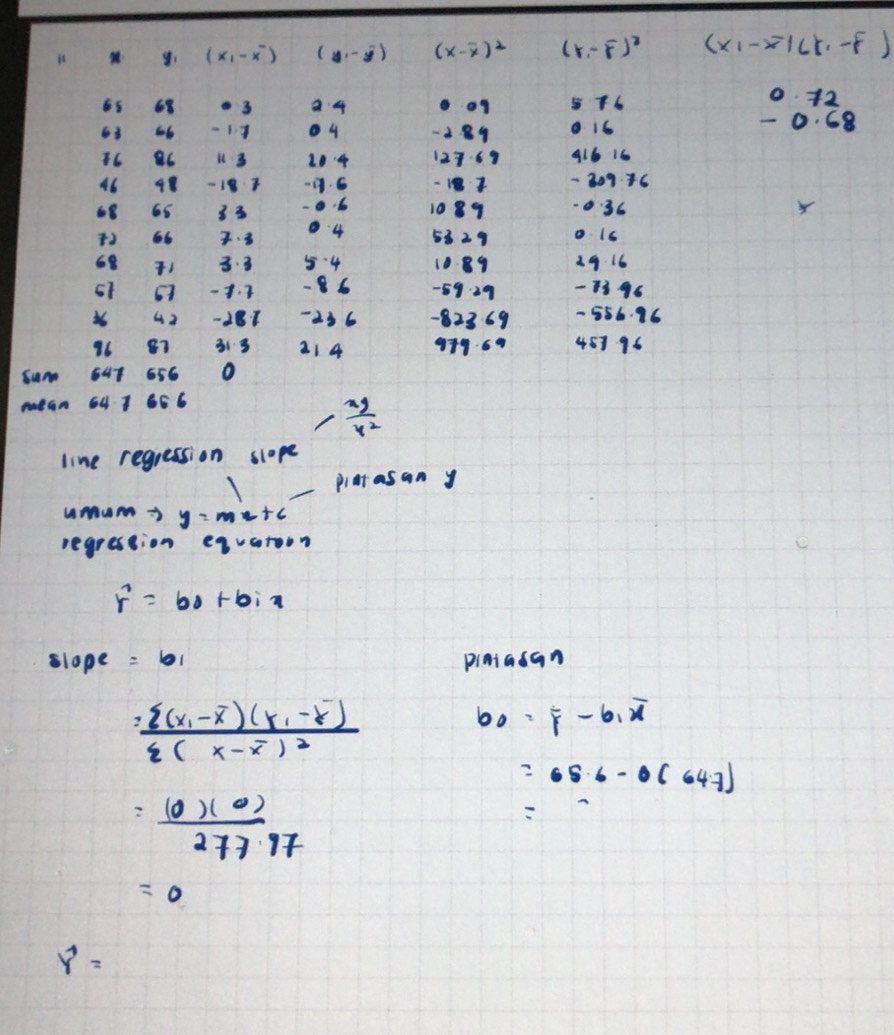 x y₁ (x₁-x̄) (y₁-ȳ) (x-x̄)² (Y₁-Ȳ)² (x₁-x̄)(Y₁-Ȳ)
65 68 0.3 2.4 0.09 5.76 0.72
63 66 -1.7 0.4 -2.89 0.16 -0.68
76 86 11.3 20.4 127.69 416.16
46 48 -18.7 -17.6 -18.7 -309.76
68 65 3.3 -0.6 10.89 -0.36
72 66 7.3 0.4 53.29 0.16
68 71 3.3 5.4 10.89 29.16
57 57 -7.7 -8.6 -59.29 -73.96
42 -28.7 -23.6 -823.69 -556.96
96 87 31.3 21.4 979.69 457.96
sum 647 656 0
mean 64.7 65.6
xy
x²
line regression slope
pintasan y
umum → y = mx+c
regression equatoon
Ŷ = b0 + b1x
slope = b1
= Σ(x₁-x̄)(Y₁-Ȳ)
Σ( x-x̄)²
= (0)(0)
277.97
= 0
pintasan
b0 = Ȳ - b1x̄
= 65.6 - 0(64.7)
=
Ŷ =